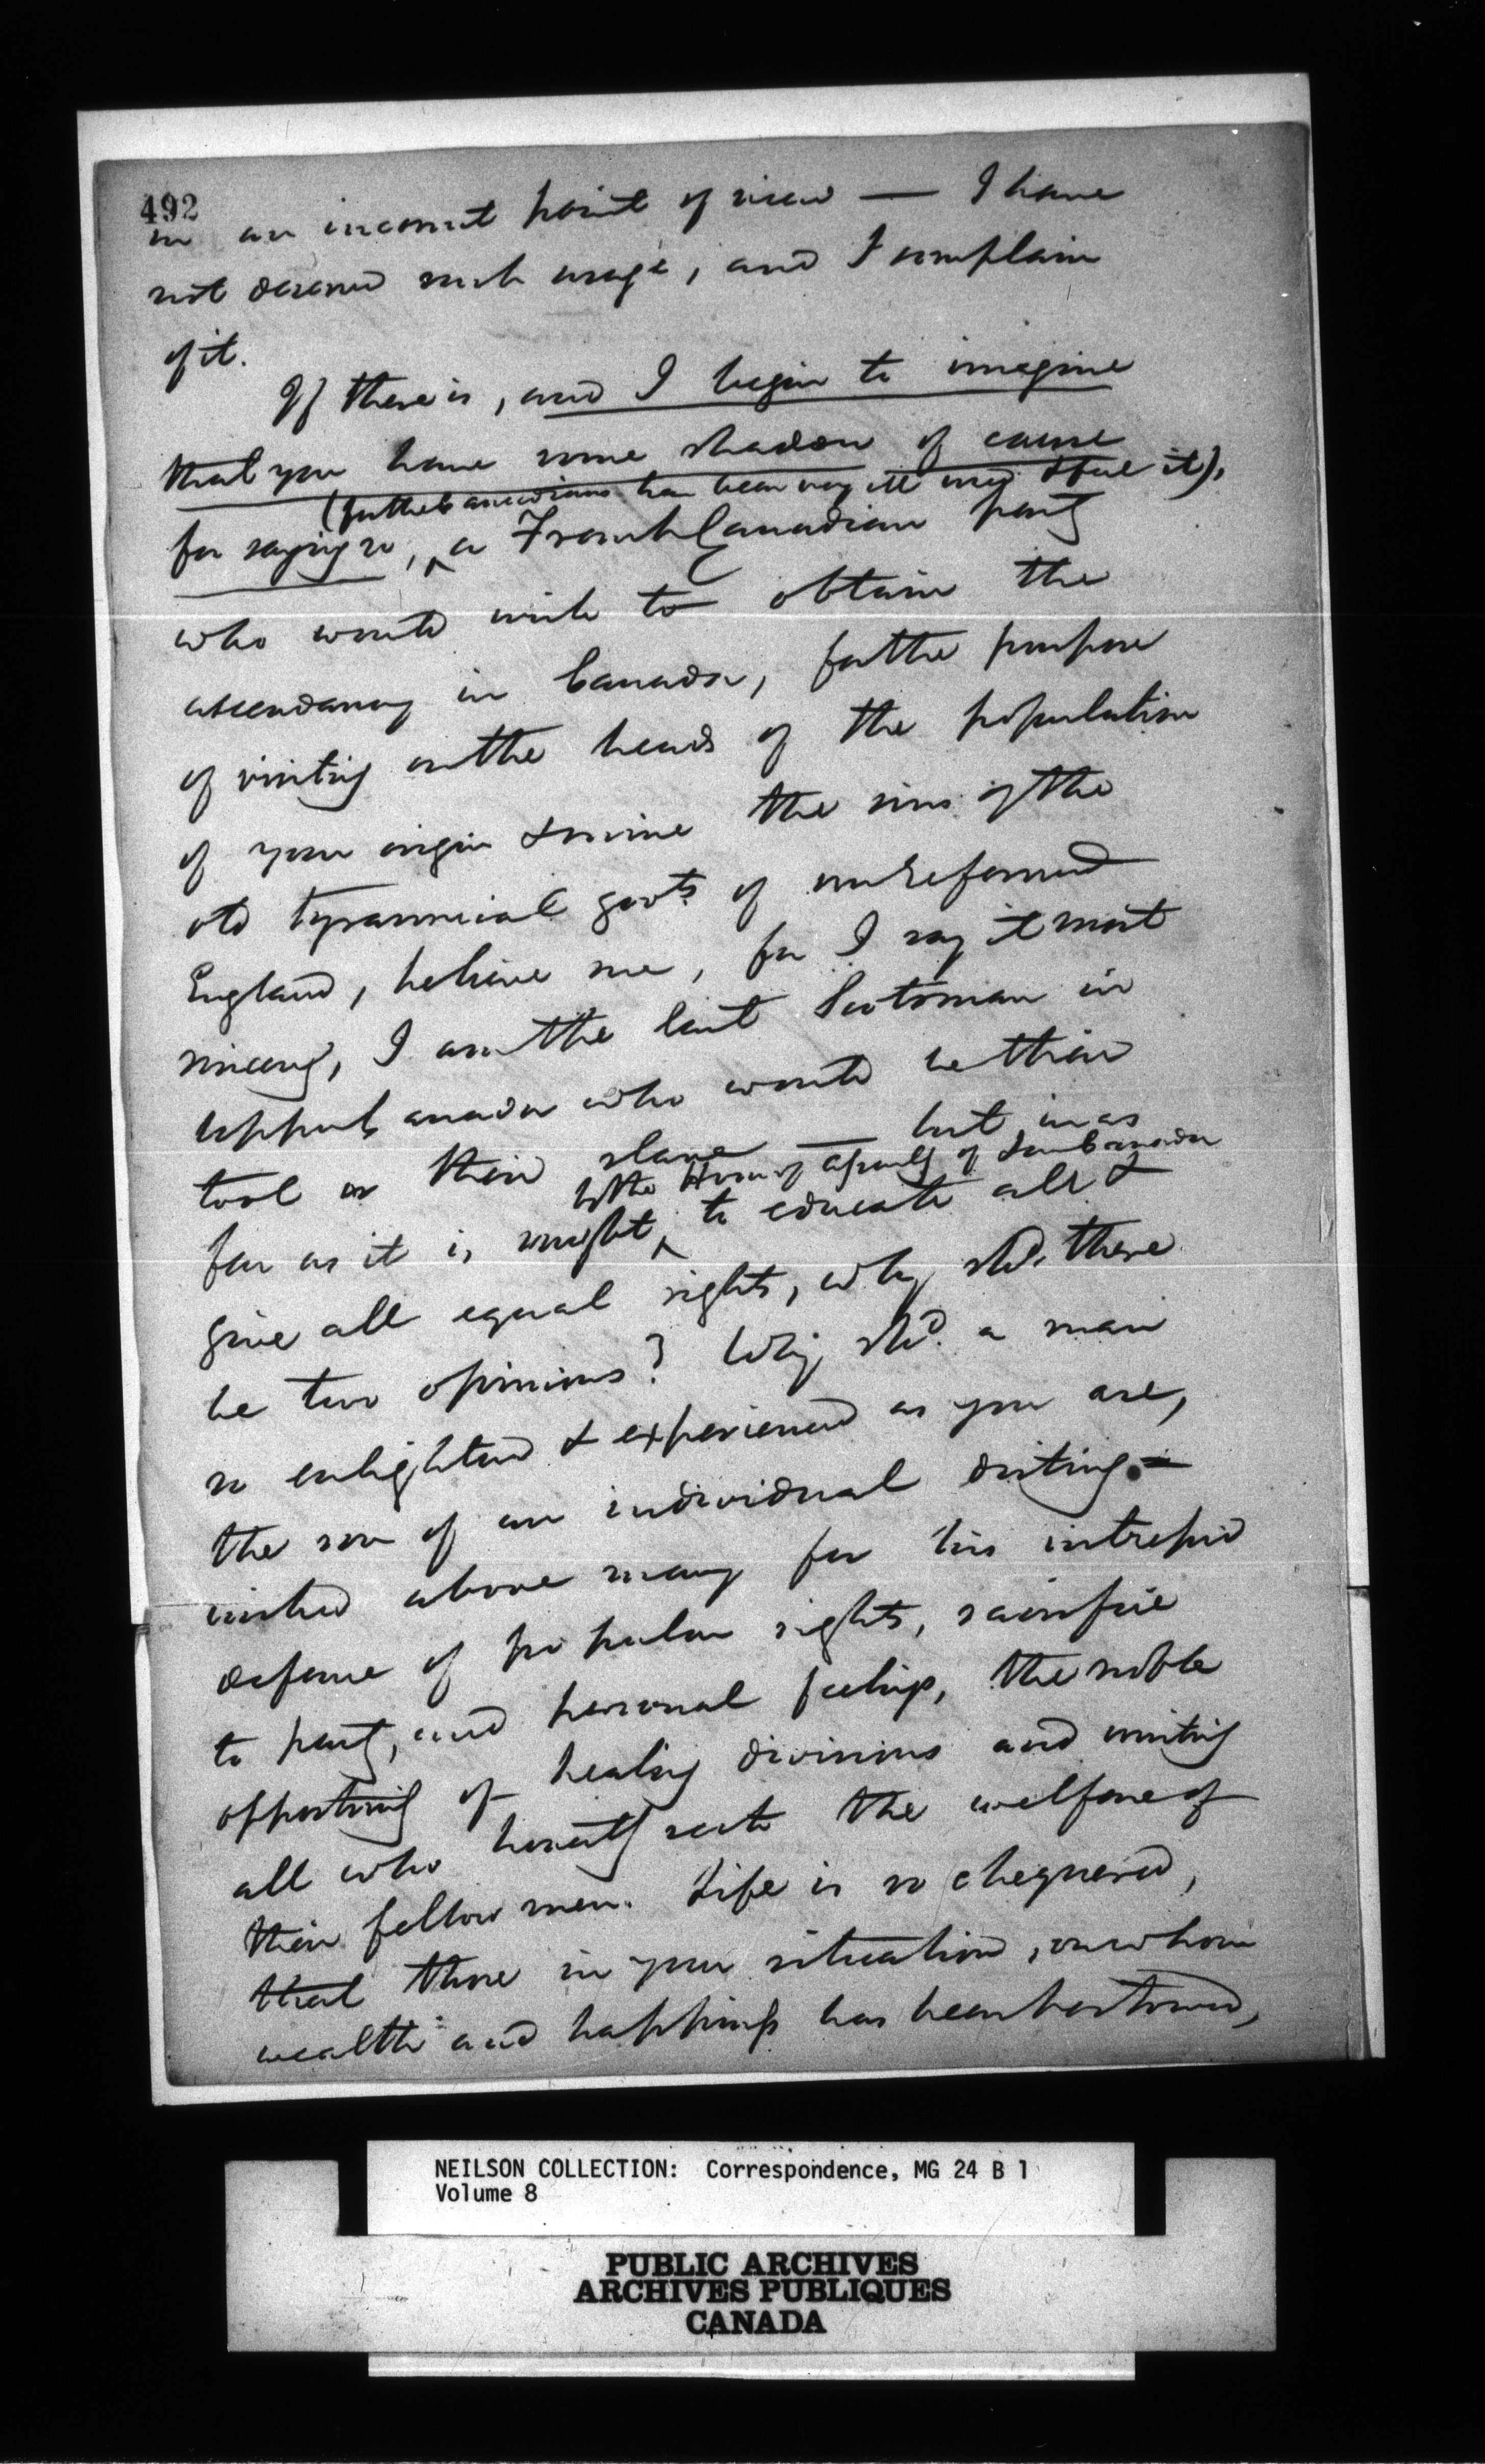 492
in an incorrect point of view — I have
not deserved such usage, and I complain
of it.
If there is, and I begin to imagine
that you have some shadow of cause
(for the Canadians have been very ill used & feel it),
for saying so, a French Canadian party
who would wish to obtain the
ascendancy in Canada, for the purpose
of visiting on the heads of the population
of your origin & mine the sins of the
old tyrannical govts of unreformed
England, believe me, for I say it most
sincerely, I am the last Scotsman in
Upper Canada who would be their
tool or their slave — but in as
by the House of Assembly of Low Canada
far as it is sought to educate all &
give all equal rights, why shd. there
be two opinions? Why shd. a man
so enlightened & experienced as you are,
the son of an individual disting-
uished above many for his intrepid
defence of popular rights, sacrifice
to party, and personal feelings, the noble
opportunity of healing divisions and uniting
all who honestly seek the welfare of
their fellow men. Life is so chequered,
that those in your situation, on whom
wealth and happiness has been bestowed,
NEILSON COLLECTION: Correspondence, MG 24 B 1
Volume 8
PUBLIC ARCHIVES
ARCHIVES PUBLIQUES
CANADA